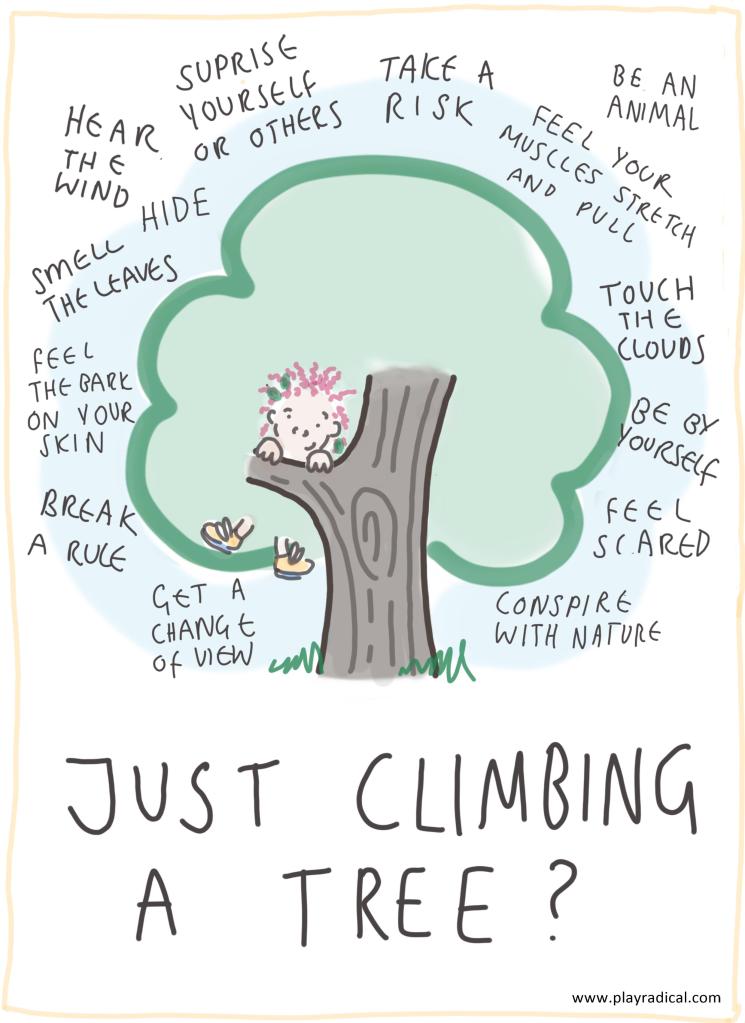 SUPRISE
YOURSELF
OR OTHERS
TAKE A
RISK
BE AN
ANIMAL
HEAR
THE
WIND
FEEL YOUR
MUSCLES STRETCH
AND PULL
HIDE
SMELL
THE LEAVES
TOUCH
THE
CLOUDS
FEEL
THE BARK
ON YOUR
SKIN
BE BY
YOURSELF
BREAK
A RULE
FEEL
SCARED
GET A
CHANGE
OF VIEW
CONSPIRE
WITH NATURE
JUST CLIMBING
A TREE?
www.playradical.com